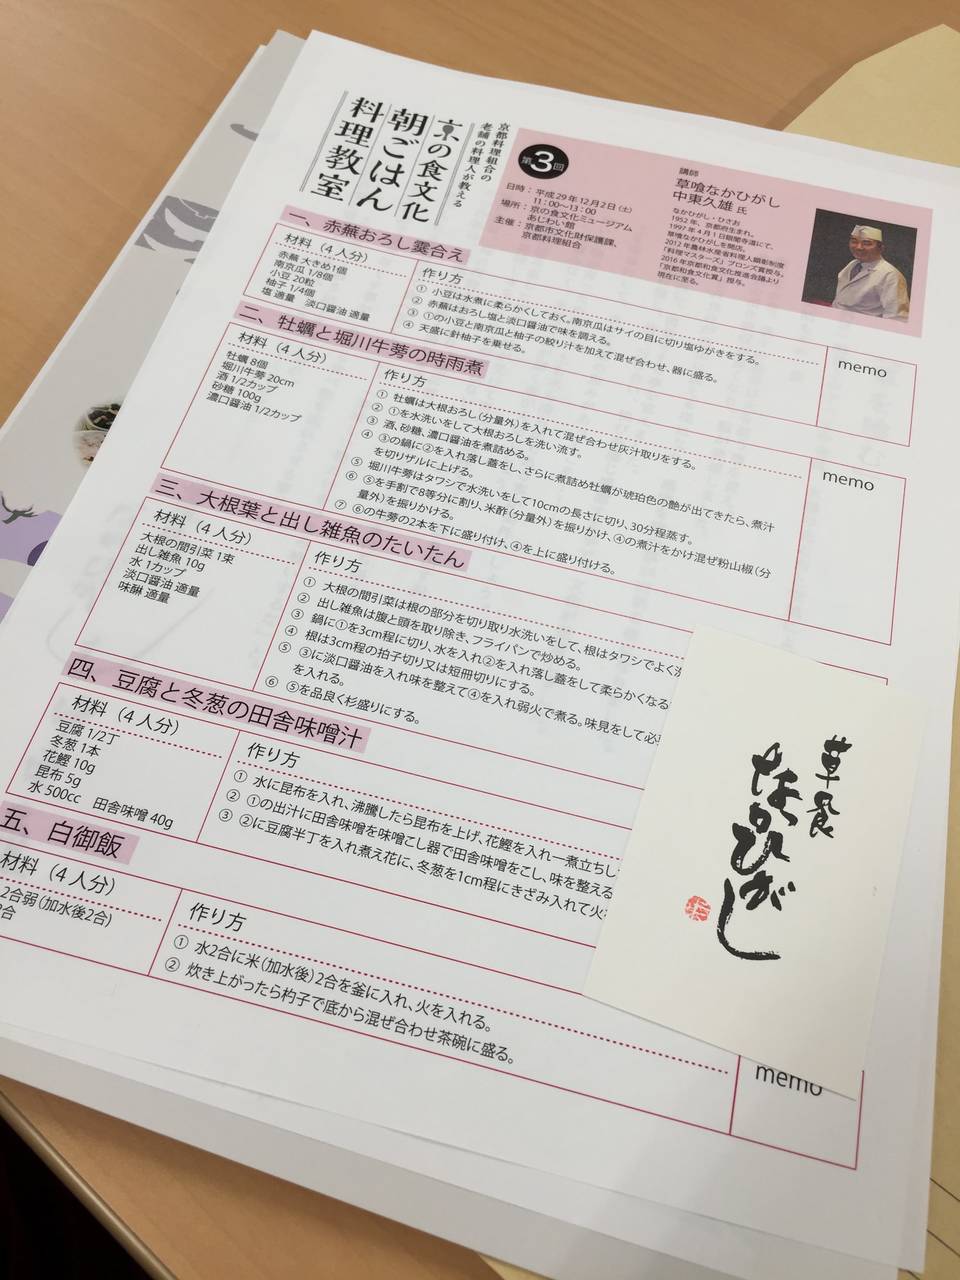 京都料理組合の
老舗の料理人が教える
京の食文化
朝ごはん
料理教室
第3回
日時：平成29年12月2日（土）
11：00～13：00
場所：京の食文化ミュージアム
あじわい館
主催：京都市文化財保護課、
京都料理組合
講師
草喰なかひがし
中東久雄 氏
なかひがし・ひさお
1952年、京都府生まれ。
1997年4月1日銀閣寺道にて、
草喰なかひがしを開店。
2012年農林水産省料理人顕彰制度
「料理マスターズ」ブロンズ賞授与。
2016年京都和食文化推進会議より
「京都和食文化賞」授与。
現在に至る。
一、赤蕪おろし霙合え
材料（4人分）
赤蕪 大きめ1個
南京瓜 1/8個
小豆 20粒
柚子 1/4個
塩 適量　淡口醤油 適量
作り方
① 小豆は水煮に柔らかくしておく。南京瓜はサイの目に切り塩ゆがきをする。
② 赤蕪はおろし塩と淡口醤油で味を調える。
③ ①の小豆と南京瓜と柚子の絞り汁を加えて混ぜ合わせ、器に盛る。
④ 天盛に針柚子を乗せる。
memo
二、牡蠣と堀川牛蒡の時雨煮
材料（4人分）
牡蠣 8個
堀川牛蒡 20cm
酒 1/2カップ
砂糖 100g
濃口醤油 1/2カップ
作り方
① 牡蠣は大根おろし（分量外）を入れて混ぜ合わせ灰汁取りをする。
② ①を水洗いをして大根おろしを洗い流す。
③ 酒、砂糖、濃口醤油を煮詰める。
④ ③の鍋に②を入れ落し蓋をし、さらに煮詰め牡蠣が琥珀色の艶が出てきたら、煮汁
を切りザルに上げる。
⑤ 堀川牛蒡はタワシで水洗いをして10cmの長さに切り、30分程蒸す。
⑥ ⑤を手割で8等分に割り、米酢（分量外）を振りかけ、④の煮汁をかけ混ぜ粉山椒（分
量外）を振りかける。
⑦ ⑥の牛蒡の2本を下に盛り付け、④を上に盛り付ける。
memo
三、大根葉と出し雑魚のたいたん
材料（4人分）
大根の間引菜 1束
出し雑魚 10g
水 1カップ
淡口醤油 適量
味醂 適量
作り方
① 大根の間引菜は根の部分を切り取り水洗いをして、根はタワシでよく
② 出し雑魚は腹と頭を取り除き、フライパンで炒める。
③ 鍋に①を3cm程に切り、水を入れ②を入れ落し蓋をして柔らかくなる
④ 根は3cm程の拍子切り又は短冊切りにする。
⑤ ③に淡口醤油を入れ味を整えて④を入れ弱火で煮る。味見をして必
を入れる。
⑥ ⑤を品良く杉盛りにする。
四、豆腐と冬葱の田舎味噌汁
材料（4人分）
豆腐 1/2丁
冬葱 1本
花鰹 10g
昆布 5g
水 500cc　田舎味噌 40g
作り方
① 水に昆布を入れ、沸騰したら昆布を上げ、花鰹を入れ一煮立ちし
② ①の出汁に田舎味噌を味噌こし器で田舎味噌をこし、味を整える
③ ②に豆腐半丁を入れ煮え花に、冬葱を1cm程にきざみ入れて火
五、白御飯
材料（4人分）
2合弱（加水後2合）
2合
作り方
① 水2合に米（加水後）2合を釜に入れ、火を入れる。
② 炊き上がったら杓子で底から混ぜ合わせ茶碗に盛る。
memo
草喰
なかひがし